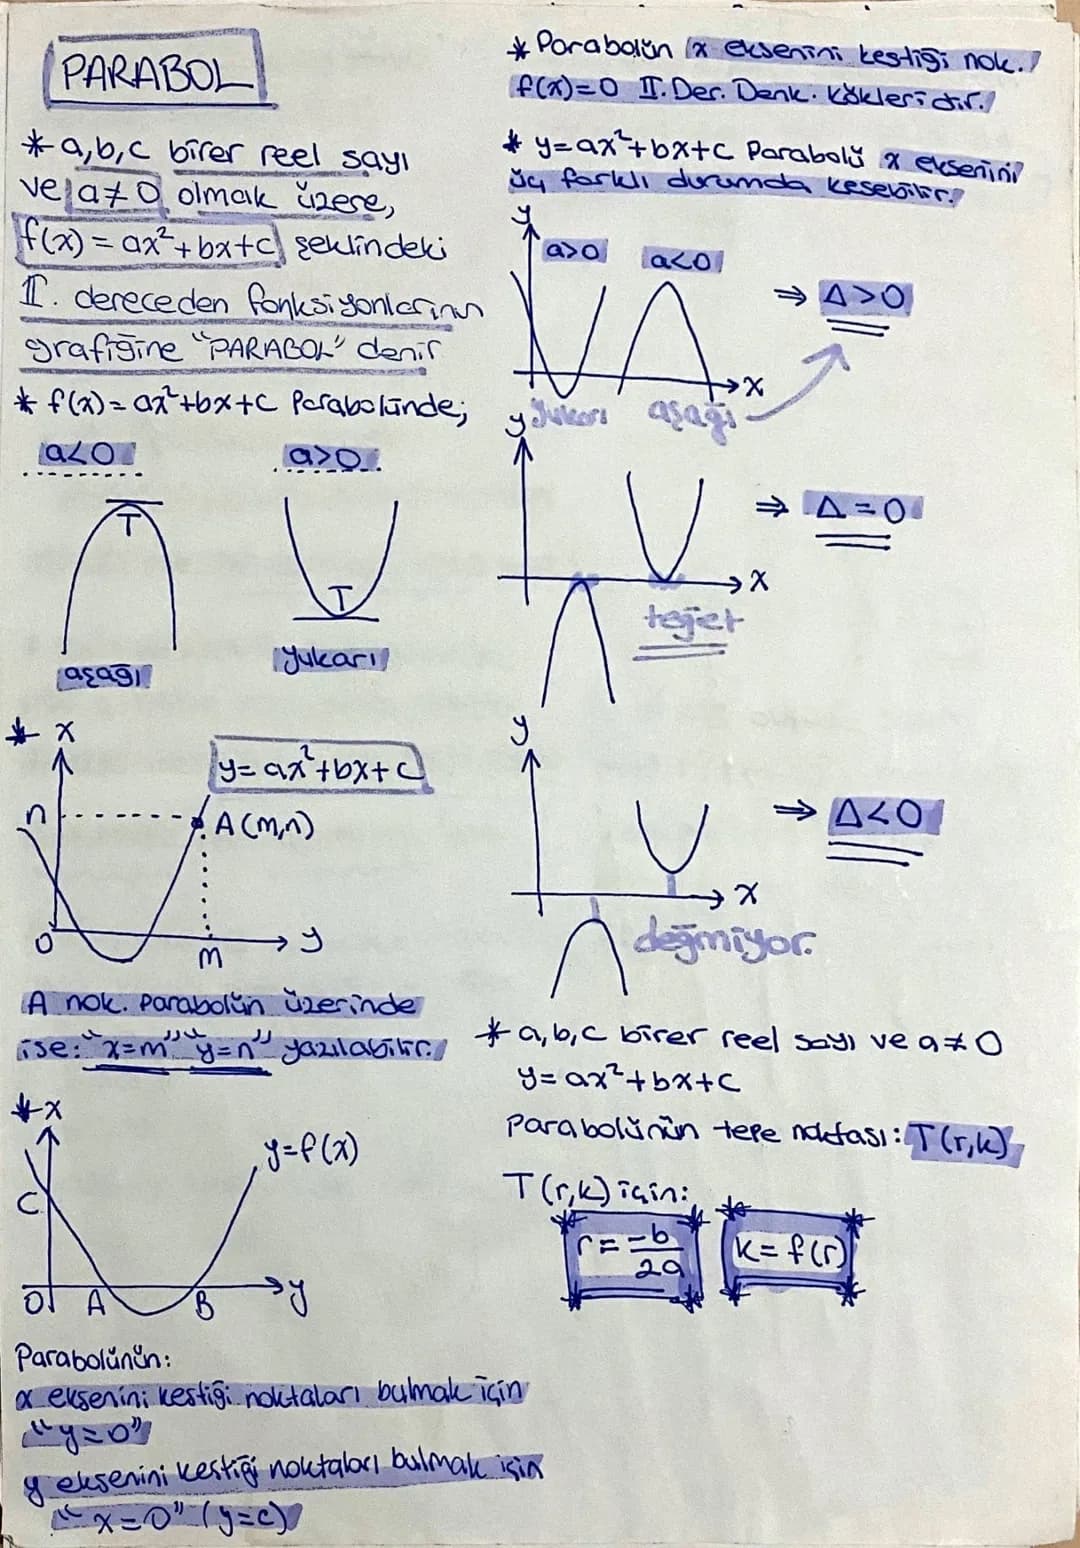 PARABOL
* a,b,c birer reel sayı
ve a≠0 olmak üzere,
f(x) = ax²+bx+c şeklindeki
II. dereceden fonksiyonlarının
grafiğine "PARABOL" denir
* f(x) = ax²+bx+c Parabolünde;
a<0 a>0
T T
aşağı yukarı
* x
y=ax²+bx+c
n A(m,n)
O m y
A nok. Parabolün üzerinde
ise: "x=m" "y=n" yazılabilir.
* x
y=f(x)
C
O A B y
Parabolünün:
x eksenini kestiği noktaları bulmak için
"y=0"
y eksenini kestiği noktaları bulmak için
"x=0" (y=c)
* Parabolün x eksenini kestiği nok.
f(x)=0 II. Der. Denk. kökleridir.
* y=ax²+bx+c Parabolü x eksenini
üç farklı durumda kesebilir.
y
a>0 a<0
⇒ Δ>0
x
yukarı aşağı
y
⇒ Δ=0
x
teğet
y
⇒ Δ<0
x
değmiyor.
* a,b,c birer reel sayı ve a≠0
y=ax²+bx+c
Parabolünün tepe noktası: T(r,k)
T(r,k) için:
r = -b/2a k = f(r)